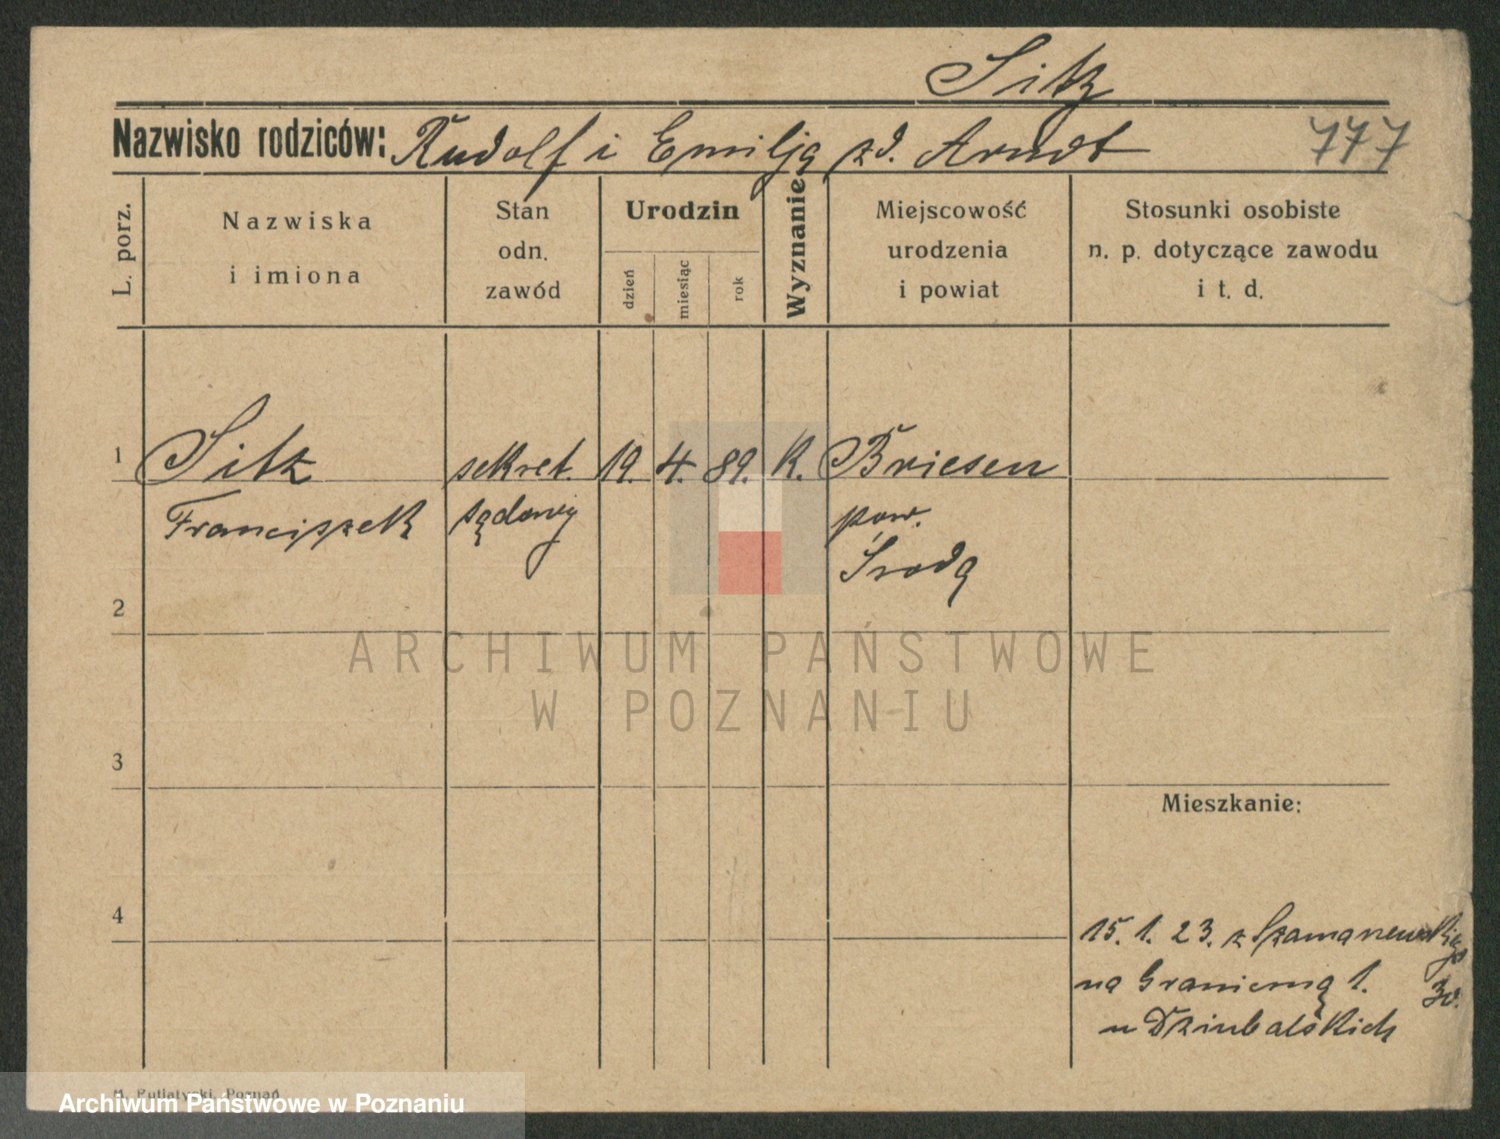 Sitz
Nazwisko rodziców: Rudolf i Emilja zd. Arndt 777
L. porz.
Nazwiska
i imiona
Stan
odn.
zawód
Urodzin
dzień
miesiąc
rok
Wyznanie
Miejscowość
urodzenia
i powiat
Stosunki osobiste
n. p. dotyczące zawodu
i t. d.
1 Sitz sekret. 19. 4. 89. K. Briesen
Franciszek sądowy pow.
Środa
2
ARCHIWUM PAŃSTWOWE
W POZNANIU
3
Mieszkanie:
4
15. 1. 23. z
na Graniczną 1.
u Dziubalskich
Poznań
Archiwum Państwowe w Poznaniu